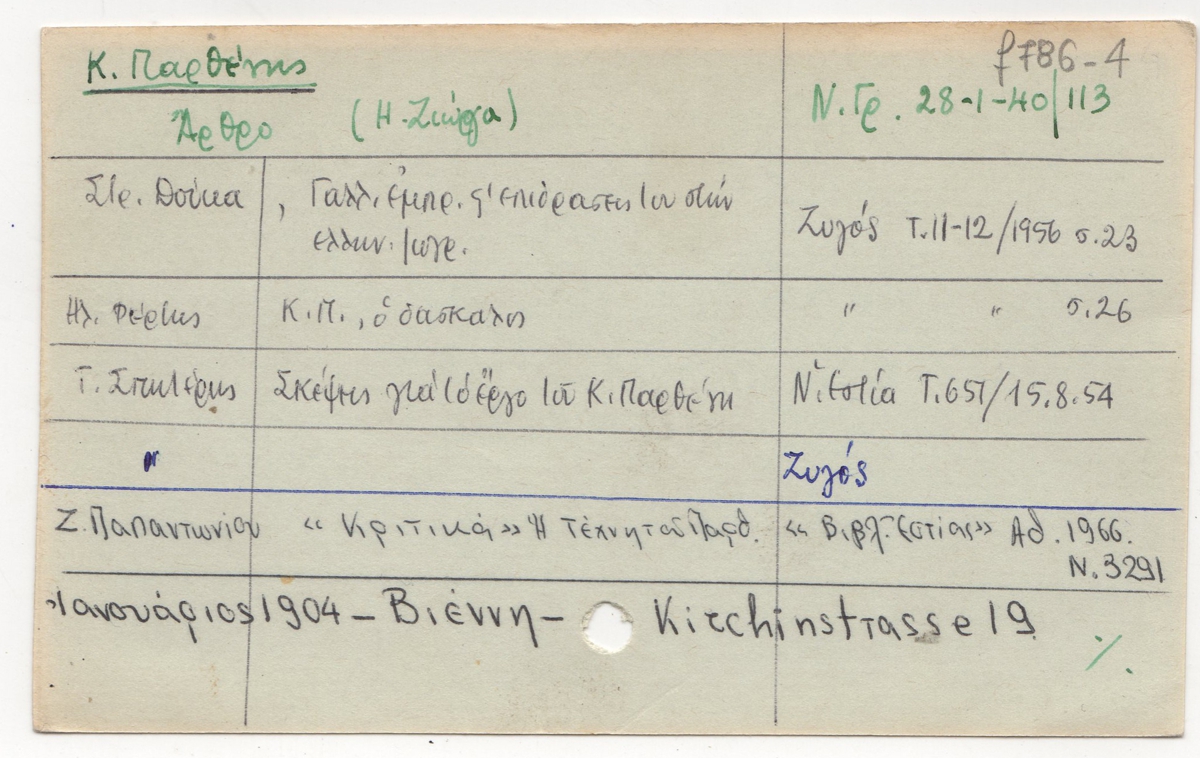 f786-4
Κ. Παρθένης
Άρθρο (Η. Ζιώγα) Ν. Γρ. 28-1-40/113
Στρ. Δούκα, Γαλλ. έμπρ. κ' επιδρασεις του στήν
ελλην. ζωγρ. Ζυγός Τ. 11-12/1956 σ. 23
Ηλ. Φέρτης Κ. Π., ὁ δασκαλος " " σ. 26
Τ. Σπητέρης Σκέψεις γιά τό ἔργο τοῦ Κ. Παρθένη Ν. Εστία Τ. 651/15.8.54
" Ζυγός
Ζ. Παπαντωνίου « Κριτικά» Ἡ Τέχνη τοῦ Παρθ. « Βιβλ. Εστίας» Αθ. 1966.
Ν. 3291
Ἰανουάριος 1904 – Βιέννη – Kirchinstrasse 19
%.